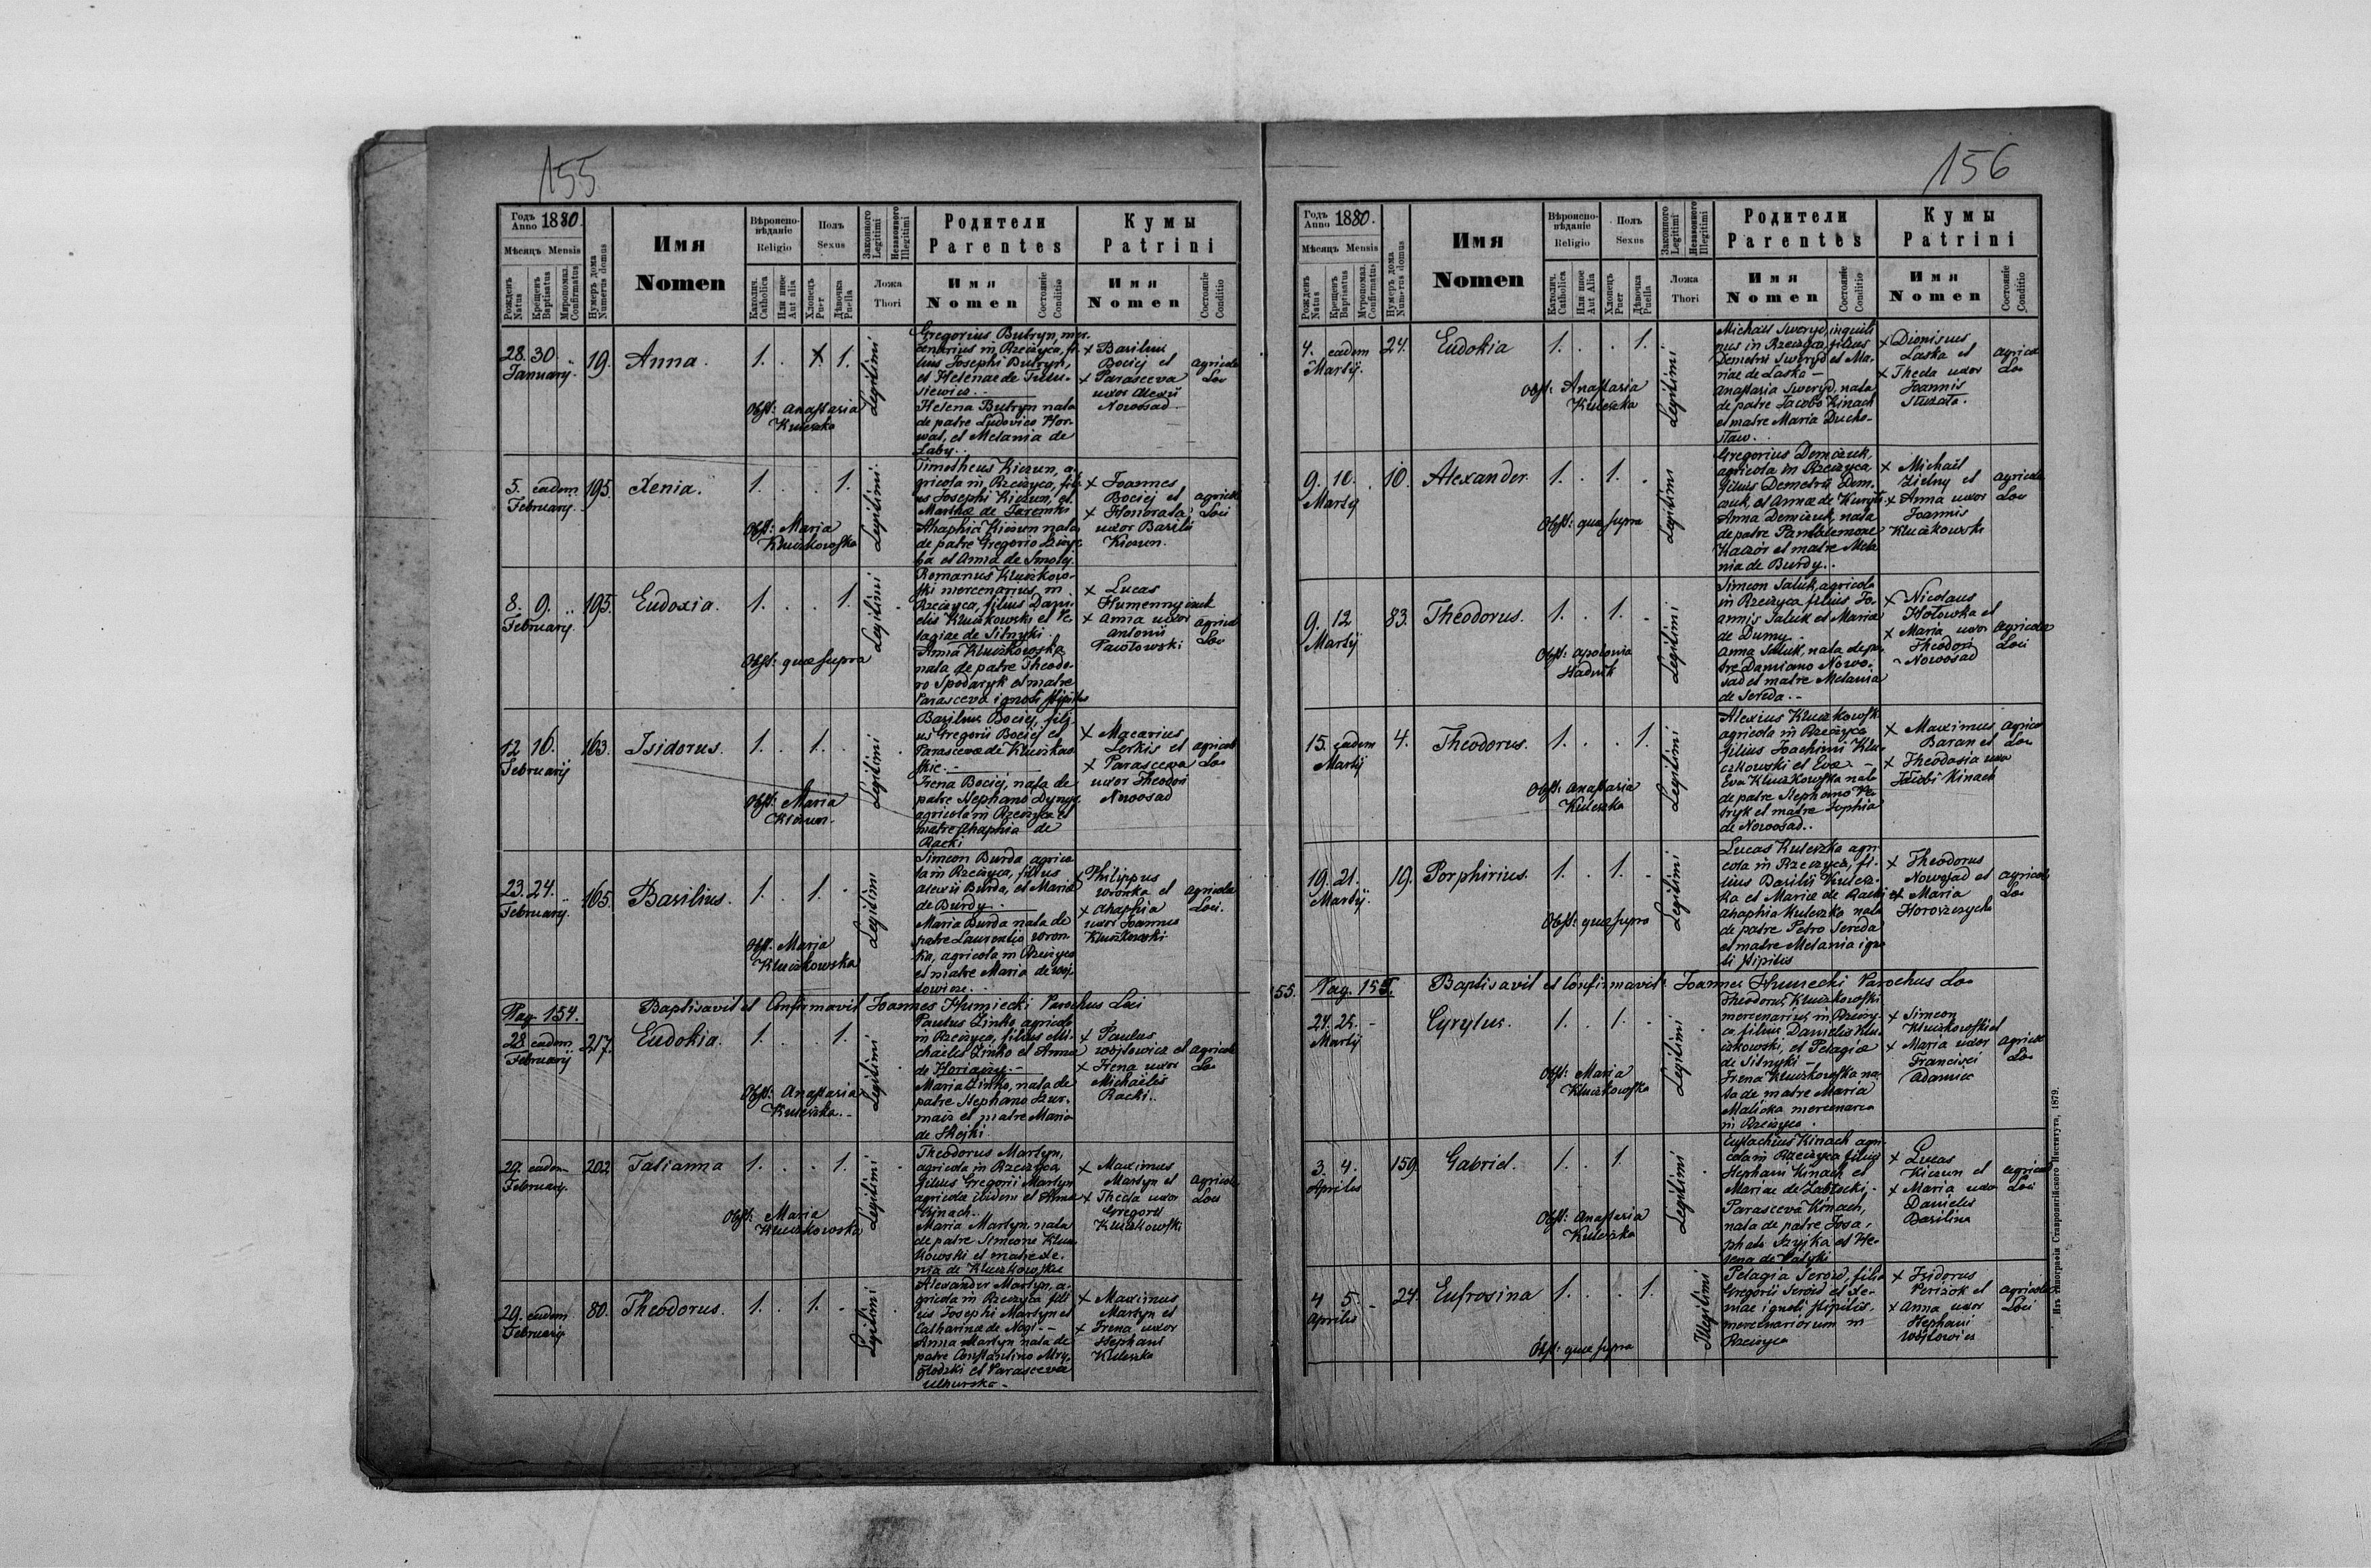 155
Годъ Anno 1880.
Мѣсяцъ Mensis
Рожденъ Natus
Крещенъ Baptisatus
Мѵропомаз. Confirmatus
Нумеръ дома Numerus domus
Имя
Nomen
Вѣроиспо-
вѣданіе
Religio
Католич. Catholica
Или иное Aut alia
Полъ
Sexus
Хлопецъ Puer
Дѣвочка Puella
Законного Legitimi
Незаконного Illegitimi
Ложа
Thori
Родители
Parentes
Имя
Nomen
Состояніе Conditio
Кумы
Patrini
Имя
Nomen
Состояніе Conditio
28. 30. 19. Anna. 1. 1. Legitimi
January.
Obst: Anastasia
Kuleszka
Gregorius Butryn, mer-
cenarius in Rzeczyca, fi-
lius Josephi Butryn,
Helena Butryn nata
de patre Ludovico Hor-
wat, et Melania de
Łaby.
+ Basilius
Bociej et
+ Parasceva
uxor Alexii
Nowosad
agricola
Loci
5. eadem 195. Xenia. 1. 1. Legitimi
February.
Obst: Maria
Kluczkowska
Timotheus Kiczun, a-
gricola in Rzeczyca, fili-
us Josephi Kiczun, et
Ahaphia Kiczun nata
de patre Gregorio
et Anna de Smoly.
+ Joannes
Bociej et
+ Honorata
uxor Basilii
Kiczun.
agricola
Loci
8. 9. 195. Eudoxia. 1. 1. Legitimi
February.
Obst: quae supra
Romanus Kluczkow-
ski mercenarius in
Rzeczyca, filius Dani-
elis Kluczkowski et Pe-
lagiae de Sitnyki
Anna Kluczkowska
nata de patre Theodo-
ro Spodaryk et matre
Parasceva ignoti stipitis
+ Lucas
Humenny et
+ Anna uxor
Antonii
Pawłowski
agricola
Loci
12 16. 163. Isidorus. 1. 1. Legitimi
Februarij
Obst: Maria
Kiczun.
Basilius Bociej, fili-
us Gregorii Bociej et
Parascevae de Kluczkow-
skie.
Irena Bociej, nata de
patre Stephano
agricola in Rzeczyca et
matre Ahaphia de
Racki
+ Macarius
Lerkis et
+ Parasceva
uxor Theodori
Nowosad
agricola
Loci
23. 24. 165. Basilius. 1. 1. Legitimi
February.
Obst. Maria
Kluczkowska
Simeon Burda agrico-
la in Rzeczyca, filius
Alexii Burda, et Maria
de Burdy.
Maria Burda nata de
patre Laurentio Wron-
ka, agricola in Rzeczyca
et matre Maria de Woj-
towicze.
+ Philippus
Wronka et
+ Ahaphia
uxor Joannis
Kluczkowski
agricola
Loci.
Pag. 154. Baptisavit et Confirmavit Joannes Humiecki Parochus Loci
28 eadem 217. Eudokia. 1. 1. Legitimi
Februarij
Obst: Anastasia
Kuleszka.
Paulus Zinko, agricola
in Rzeczyca, filius Mi-
chaelis Zinko et Anna
Maria Zinko, nata de
patre Stephano
et matre Maria
+ Paulus
Wojtowicz et
+ Irena uxor
Michaelis
Racki.
agricola
Loci
29. eadem 202 Tatianna 1. 1. Legitimi
February.
Obst: Maria
Kluczkowska
Theodorus Martyn,
agricola in Rzeczyca
filius Gregorii Martyn
agricola ibidem et Anna
Kinach.
Maria Martyn nata
de patre Simeone Klucz-
kowski et matre Xe-
nia de Kluczkowskie
+ Maximus
Martyn et
+ Thecla uxor
Gregorii
Kluczkowski
agricola
Loci
29. eadem 80. Theodorus. 1. 1. Legitimi
February
Alexander Martyn, a-
gricola in Rzeczyca fili-
us Josephi Martyn et
Catharinae de Nagi-
Anna Martyn nata de
patre Constantino Mry-
głodzki et Parasceva
+ Maximus
Martyn et
+ Irena uxor
Stephani
Kuleszka
156
Годъ Anno 1880.
Мѣсяцъ Mensis
Рожденъ Natus
Крещенъ Baptisatus
Мѵропомаз. Confirmatus
Нумеръ дома Numerus domus
Имя
Nomen
Вѣроиспо-
вѣданіе
Religio
Католич. Catholica
Или иное Aut Alia
Полъ
Sexus
Хлопецъ Puer
Дѣвочка Puella
Законного Legitimi
Незаконного Illegitimi
Ложа
Thori
Родители
Parentes
Имя
Nomen
Состояніе Conditio
Кумы
Patrini
Имя
Nomen
Состояніе Conditio
4. eadem 24. Eudokia 1. 1. Legitimi
Martij.
Obst: Anastasia
Kuleszka
Michael Sweryd, inquili-
nus in Rzeczyca, filius
Demetrii Sweryd et Ma-
riae de Laska -
Anastasia Sweryd, nata
de patre Jacobo Kinach
et matre Maria Ducho-
staw.
+ Dionisius
Laska et
+ Thecla uxor
Joannis
agricola
Loci
9. 10. 10. Alexander. 1. 1. Legitimi
Martij
Obst: quae supra
Gregorius Demczuk,
agricola in Rzeczyca
filius Demetrii Dem-
czuk, et Annae de
Anna Demczuk, nata
de patre Pantalemone
Kaczór et matre Mela-
nia de Burdy.
+ Michael
Zielny et
+ Anna uxor
Joannis
Kluczkowski
agricola
Loci
9. 12 83. Theodorus. 1. 1. Legitimi
Martij
Obst: Apolonia
Simeon Saluk, agricola
in Rzeczyca filius Jo-
annis Saluk et Maria
de Dumy.
Anna Saluk, nata de pa-
tre Damiano Nowo-
sad et matre Melania
de Sereda.
+ Nicolaus
Hołowka et
+ Maria uxor
Theodori
Nowosad
agricola
Loci
15. eadem 4. Theodorus. 1. 1. Legitimi
Martij
Obst: Anastasia
Kuleszka
Alexius Kluczkowski
agricola in Rzeczyca
filius Joachimi Klu-
czkowski et Evae -
Eva Kluczkowska nata
de patre Stephano Pe-
tryk et matre Sophia
de Nowosad.
+ Maximus
Baran et
+ Theodosia uxor
Jacobi Kinach
agricola
Loci
19. 21. 19. Porphirius. 1. 1. Legitimi
Martij.
Obst: quae supra
Lucas Kuleszka agri-
cola in Rzeczyca, fi-
lius Basilii Kulesz-
ka et Mariae de Racki
Ahaphia Kuleszka nata
de patre Petro Sereda
et matre Melania igno-
ti stipitis
+ Theodorus
Nowosad et
+ Maria
Horoszczycha
agricola
Loci
155. Pag. 155. Baptisavit et Confirmavit Joannes Humiecki Parochus Loci
24. 25. Cyrylus. 1. 1. Legitimi
Martij
Obst: Maria
Kluczkowska
Theodorus Kluczkowski
mercenarius in Rzeczy-
ca, filius Danielis Klu-
czkowski, et Pelagiae
de Sitnyki -
Irena Kluczkowska na-
ta de matre Maria
Malicka mercenaria
in Rzeczyca.
+ Simeon
Kluczkowski et
+ Maria uxor
Francisci
Adamicz
agricola
Loci
3. 4. 159. Gabriel. 1. 1. Legitimi
Aprilis
Obst: Anastasia
Kuleszka
Eustachius Kinach agri-
cola in Rzeczyca filius
Stephani Kinach et
Mariae de Zabłocki.
Parasceva Kinach,
nata de patre Josa-
phato Szyjka et He-
lena de
+ Lucas
Kiczun et
+ Maria uxor
Danielis
Basilina
agricola
Loci
4 5. 24. Eufrosina 1. 1. Illegitimi
Aprilis
Obst: quae supra
Pelagia Seroid, filia
Gregorii Seroid et Xe-
niae ignoti stipitis,
mercenariorum in
Rzeczyca
+ Isidorus
et
+ Anna uxor
Stephani
Wojtowicz
agricola
Loci
Изъ типографіи Ставропигійского Института, 1879.